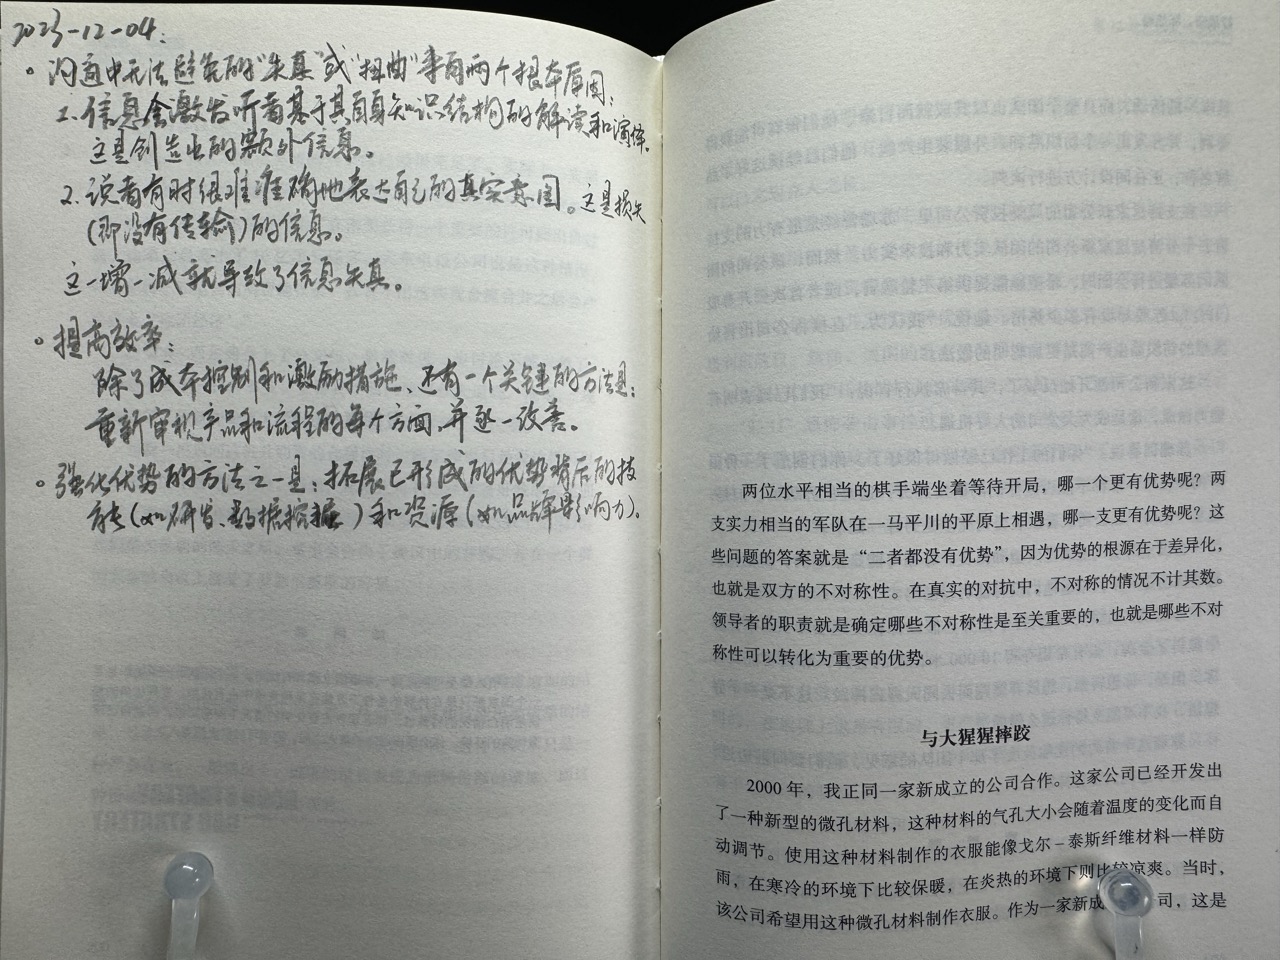 2023-12-04:
• 沟通中无法避免的“失真”或“扭曲”来自两个根本原因:
1. 信息会激发听者基于其自身知识结构的解读和演绎。
这是创造出的额外信息。
2. 说者有时很难准确地表达自己的真实意图。这是损失
(即没有传输)的信息。
这一增一减就导致了信息失真。
• 提高效率:
除了成本控制和激励措施、还有一个关键的方法是:
重新审视产品和流程的每个方面,并逐一改善。
• 强化优势的方法之一是:拓展已形成的优势背后的技
能(如研发、数据挖掘)和资源(如品牌影响力)。
两位水平相当的棋手端坐着等待开局，哪一个更有优势呢？两
支实力相当的军队在一马平川的平原上相遇，哪一支更有优势呢？这
些问题的答案就是“二者都没有优势”，因为优势的根源在于差异化，
也就是双方的不对称性。在真实的对抗中，不对称的情况不计其数。
领导者的职责就是确定哪些不对称性是至关重要的，也就是哪些不对
称性可以转化为重要的优势。
与大猩猩摔跤
2000 年，我正同一家新成立的公司合作。这家公司已经开发出
了一种新型的微孔材料，这种材料的气孔大小会随着温度的变化而自
动调节。使用这种材料制作的衣服能像戈尔–泰斯纤维材料一样防
雨，在寒冷的环境下比较保暖，在炎热的环境下则比较凉爽。当时，
该公司希望用这种微孔材料制作衣服。作为一家新成 司，这是